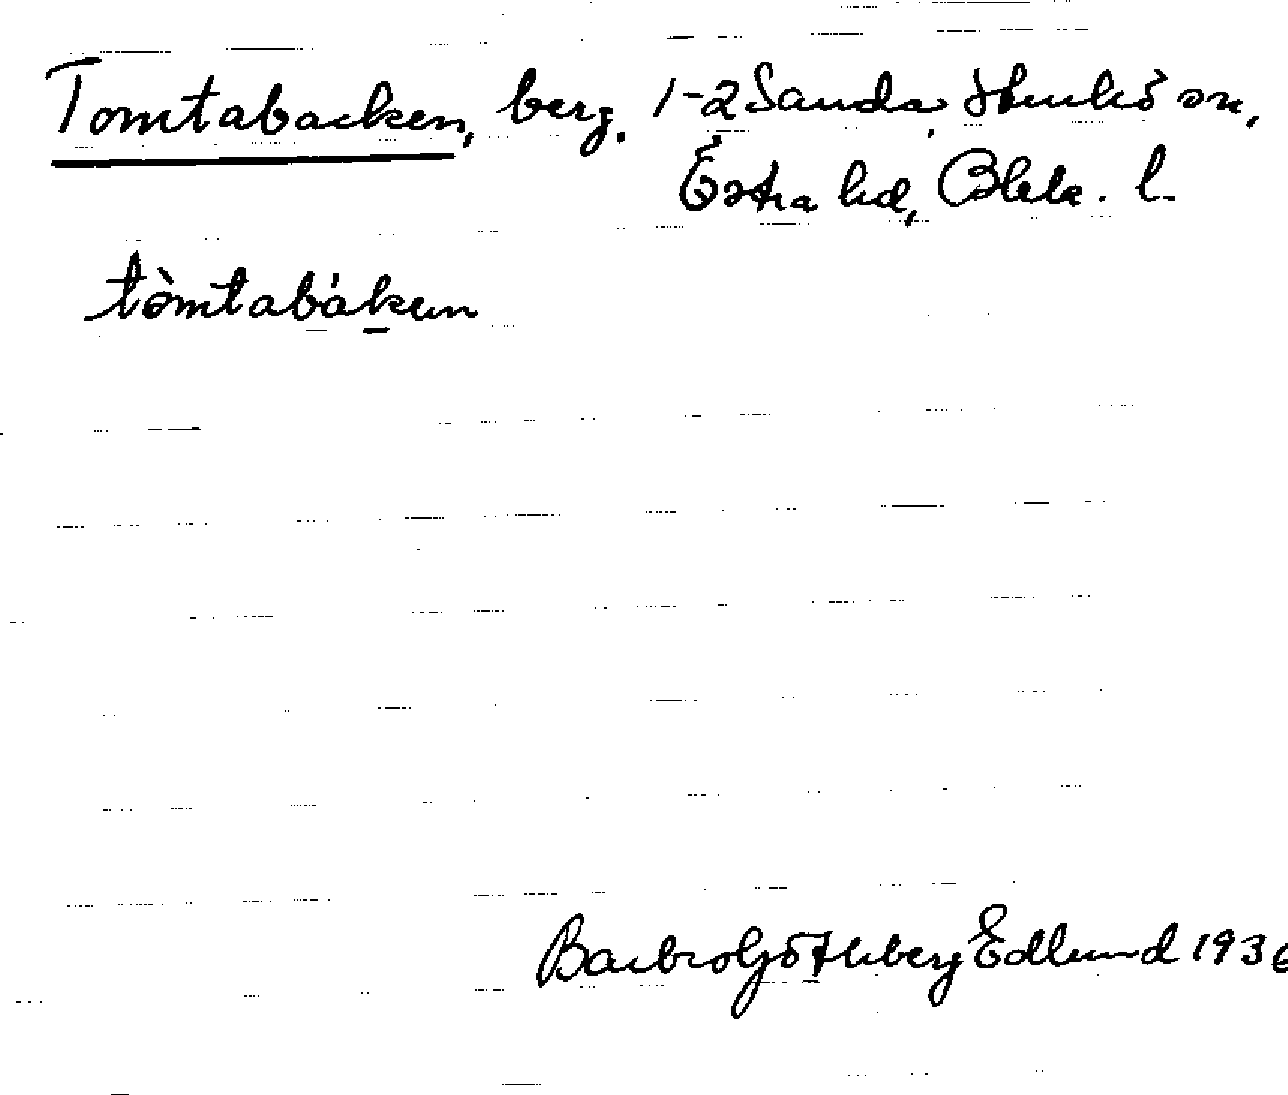 Tomtabacken, berg. 1-2 Sanda, Sturkö sn,
Östra hd, Blek. l.
tòmtabákɐn
Barbro Götheberg Edlund 1936